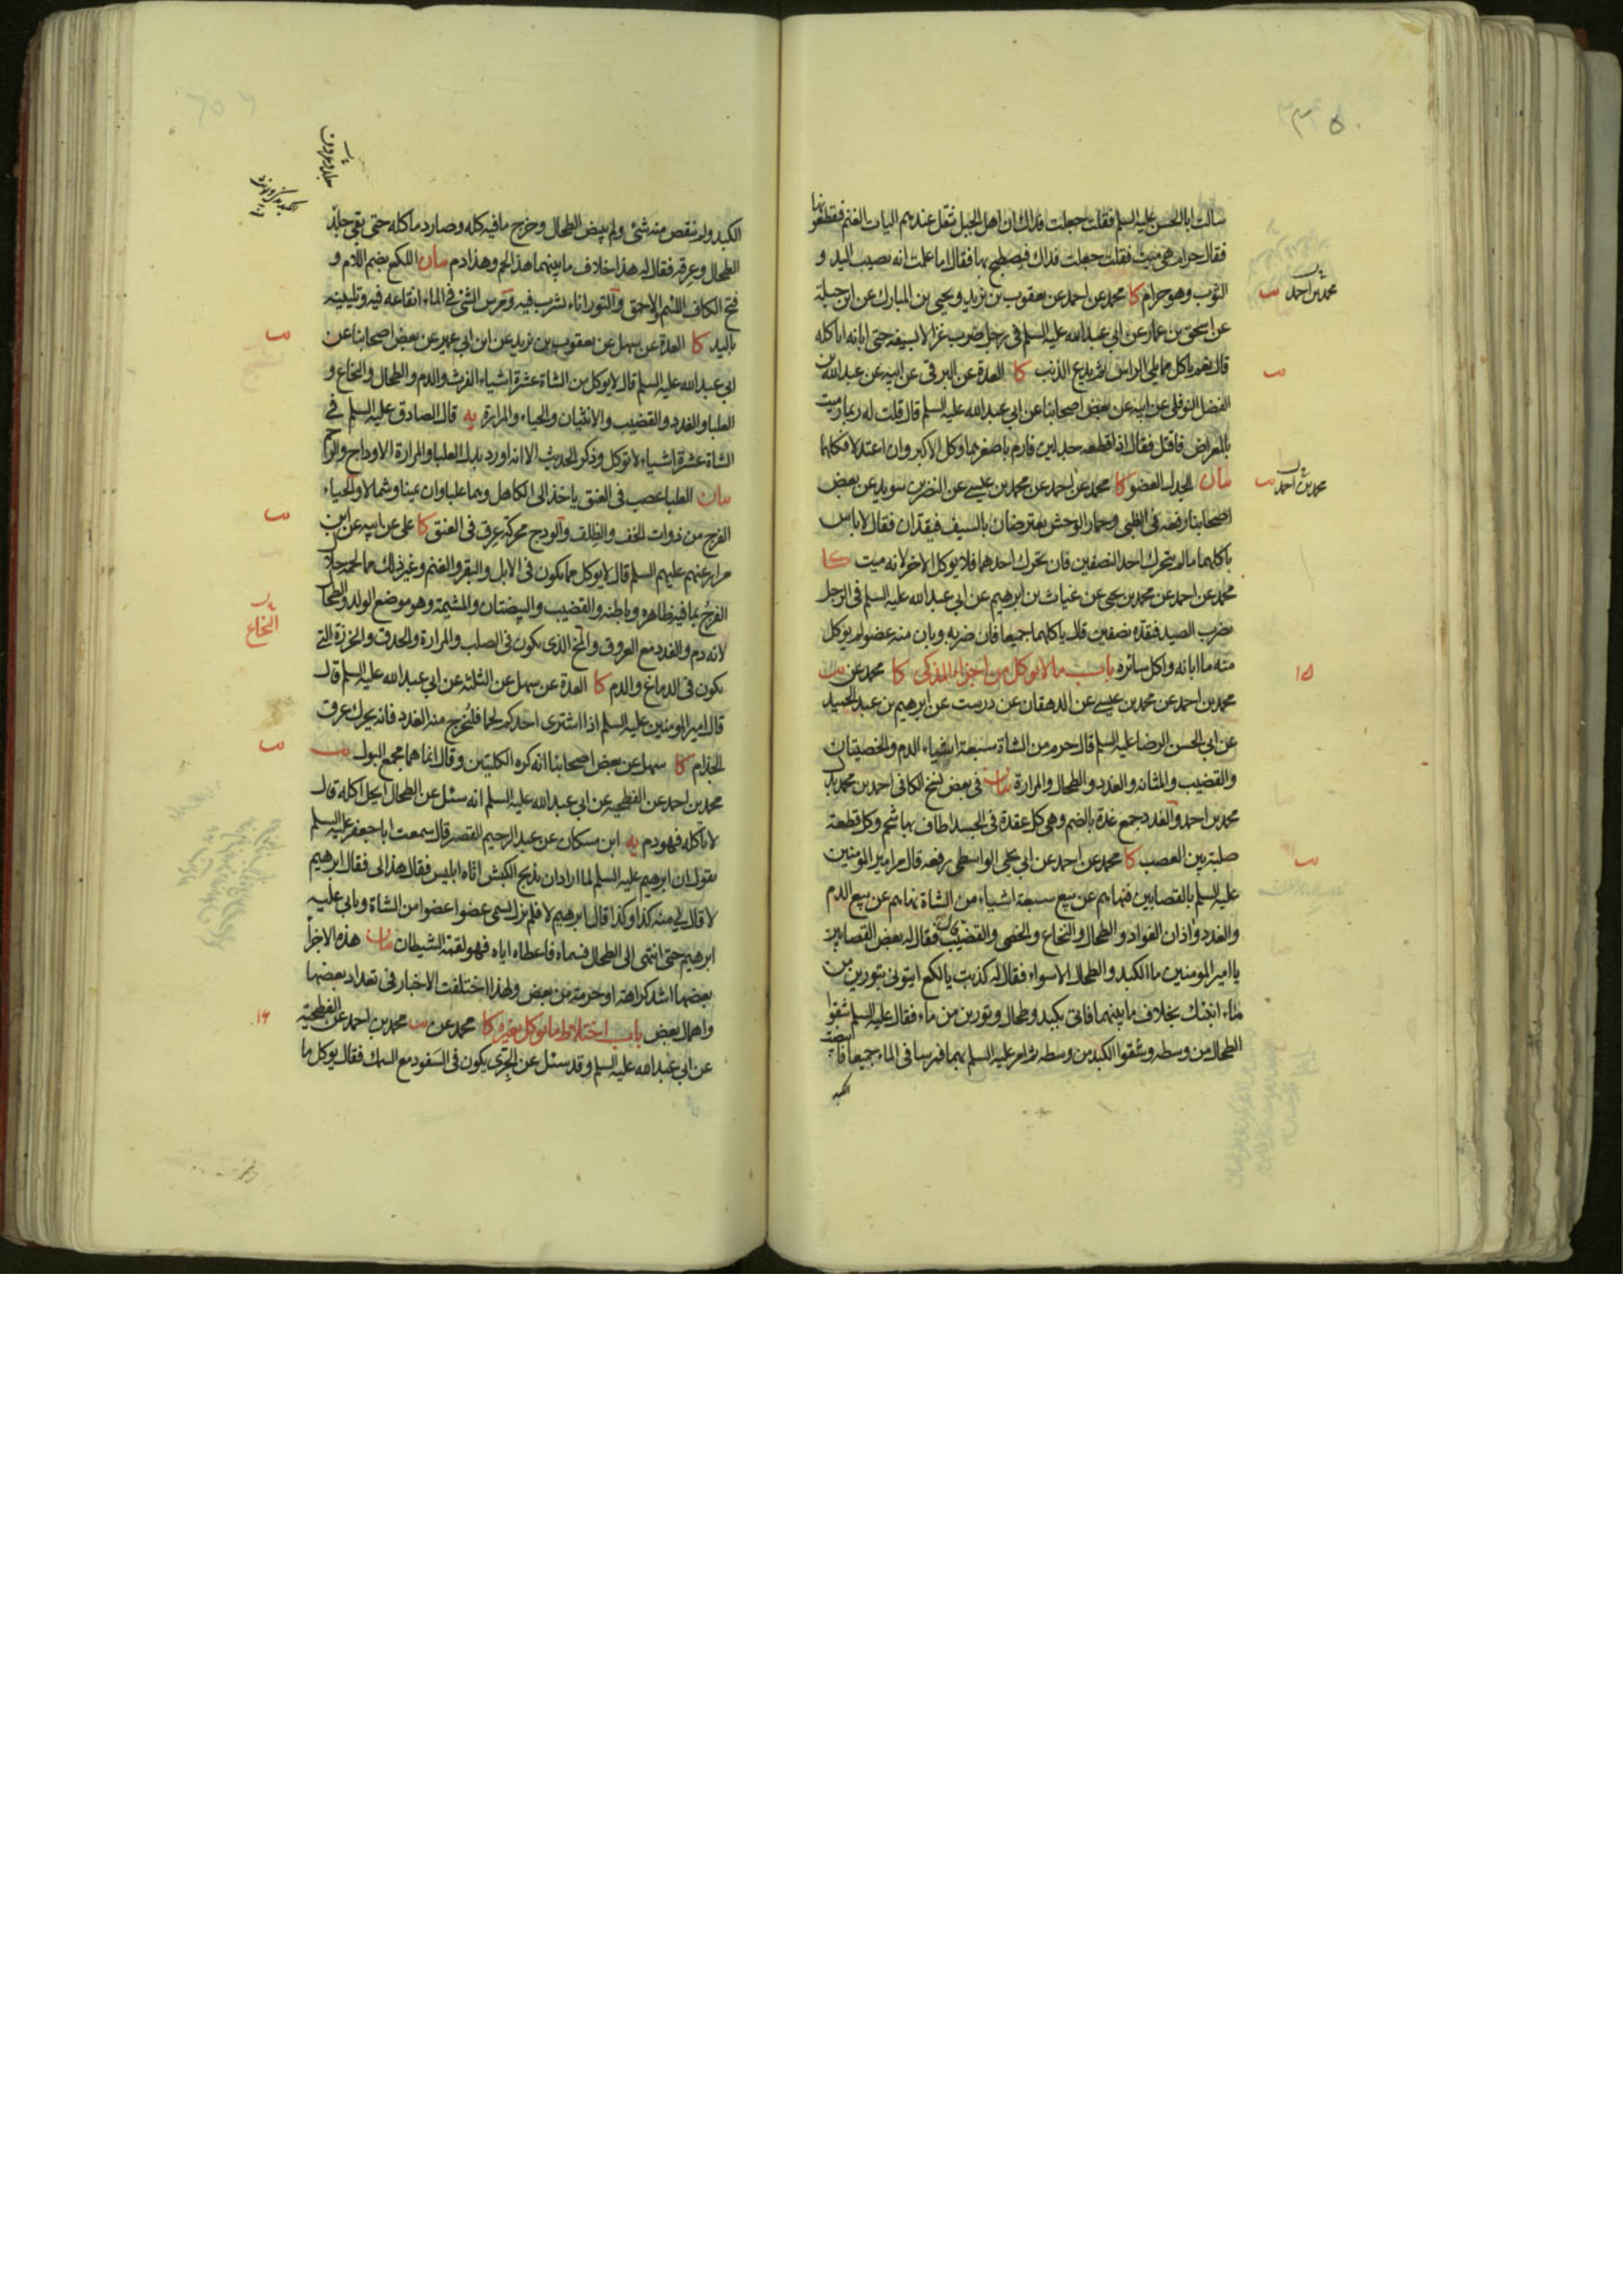 سالت ابا الحسن عليه السلم فقلت جعلت فداك ان اهل الجبل تثقل عندهم اليات الغنم فيقطعونها
فقال حرام هي ميت فقلت جعلت فداك فيصطبح بها فقال اما علمت انه تصيب اليد و
الثوب وهو حرام كا محمد عن احمد عن يعقوب بن يزيد ويحيى بن المبارك عن ابن جبلة
عن اسحق بن عمار عن ابي عبدالله عليه السلم في رجل ضرب غزالا بسيفه حتى ابانه اياكله
قال نعم ياكل مما يلي الراس ثم يدع الذنب كا العدة عن البرقي عن ابيه عن عبدالله بن
الفضل النوفلي عن ابيه عن بعض اصحابنا عن ابي عبدالله عليه السلم قال قلت له ربما رميت
بالمعراض فاقتل فقال اذا قطعه جدلين فارم باصغرهما وكل الاكبر وان اعتدلا فكلهما
بيان الجدل العضو كا محمد عن احمد عن محمد بن عيسى عن النضر بن سويد عن بعض
اصحابنا رفعه في الظبي وحمار الوحش يعترضان بالسيف فيقدان فقال لا باس
باكلهما ما لم يتحرك احد النصفين فان تحرك احدهما فلا يوكل الاخر لانه ميت كا
محمد عن احمد عن محمد بن يحيى عن غياث بن ابرهيم عن ابي عبدالله عليه السلم في الرجل
يضرب الصيد فيقده نصفين قال ياكلهما جميعا فان ضربه وبان منه عضو لم يوكل
منه ما ابانه واكل سائره باب ما لا يوكل من اجزاء المذكى كا محمد عن
محمد بن احمد عن محمد بن عيسى عن الدهقان عن درست عن ابرهيم بن عبد الحميد
عن ابي الحسن الرضا عليه السلم قال حرم من الشاة سبعة اشياء الدم والخصيتان
والقضيب والمثانه والغدد والطحال والمرارة بيان في بعض نسخ الكافي احمد بن محمد بدل
محمد بن احمد والغدد جمع غدة بالضم وهي كل عقدة في الجسد اطاف بها شحم وكل قطعة
صلبة بين العصب كا محمد عن احمد عن ابي يحيى الواسطي رفعه قال مر امير المومنين
عليه السلم بالقصابين فنهاهم عن بيع سبعة اشياء من الشاة نهاهم عن بيع الدم
والغدد واذان الفواد والطحال والنخاع والخصى والقضيب فقال له بعض القصابين
يا امير المومنين ما الكبد والطحال الا سواء فقال له كذبت يا لكع ايتوني بتورين من
ماء انبئك بخلاف ما بينهما فاتى بكبد وطحال وتورين من ماء فقال عليه السلم شقوا
الطحال من وسطه وشقوا الكبد من وسطه ثم امر عليه السلم بهما فمرسا في الماء جميعا فابيضت
الكبد
محمد بن احمد
محمد بن احمد
١٥
الكبد ولم ينقص منه شئ ولم يبيض الطحال وخرج ما فيه كله وصار دما كله حتى بقي جلد
الطحال وعرقه فقال له هذا خلاف ما بينهما هذا لحم وهذا دم بيان اللكع بضم اللام و
فتح الكاف اللئيم والاحمق والتور اناء يشرب فيه ومرس الشئ في الماء انقاعه فيه وتليينه
باليد كا العدة عن سهل عن يعقوب بن يزيد عن ابن ابي عمير عن بعض اصحابنا عن
ابي عبدالله عليه السلم قال لا يوكل من الشاة عشرة اشياء الفرث والدم والطحال والنخاع و
العلبا والغدد والقضيب والانثيان والحياء والمرارة يه قال الصادق عليه السلم في
الشاة عشرة اشياء لا توكل وذكر الحديث الا انه اورد بدل العلبا والمرارة الاوداج والرحم
بيان العلبا عصب في العنق ياخذ الى الكاهل وهما علباوان يمينا وشمالا والحياء
الفرج من ذوات الخف والظلف والودج محركة عرق في العنق كا علي عن ابيه عن ابن
مرار عنهم عليهم السلم قال لا يوكل مما يكون في الابل والبقر والغنم وغير ذلك مما لحمه حلال
الفرج بما فيه ظاهره وباطنه والقضيب والبيضتان والمشيمة وهو موضع الولد والطحال
لانه دم والغدد مع العروق والمخ الذي يكون في الصلب والمرارة والحدق والخرزة التي
يكون في الدماغ والدم كا العدة عن سهل عن الثلثه عن ابي عبدالله عليه السلم قال
قال امير المومنين عليه السلم اذا اشترى احدكم لحما فليخرج منه الغدد فانه يحرك عرق
الجذام كا سهل عن بعض اصحابنا انه كره الكليتين وقال انما هما مجمع البول
محمد بن احمد عن الفطحيه عن ابي عبدالله عليه السلم انه سئل عن الطحال ايحل اكله قال
لا تاكله فهو دم يه ابن مسكان عن عبد الرحيم القصير قال سمعت ابا جعفر عليه السلم
يقول ان ابرهيم عليه السلم لما اراد ان يذبح الكبش اتاه ابليس فقال هذا لي فقال ابرهيم
لا قال لي منه كذا وكذا قال ابرهيم لا فلم يزل يسمي عضوا عضوا من الشاة ويابى عليه
ابرهيم حتى انتهى الى الطحال فسماه فاعطاه اياه فهو لقمة الشيطان بيان هذه الاجزاء
بعضها اشد كراهة او حرمة من بعض ولهذا اختلفت الاخبار في تعداد بعضها
واهمال بعض باب اختلاط ما يوكل بغيره كا محمد عن محمد بن احمد عن الفطحية
عن ابي عبدالله عليه السلم وقد سئل عن الجرى يكون في السفود مع السمك فقال يوكل ما
النخاع
١٦